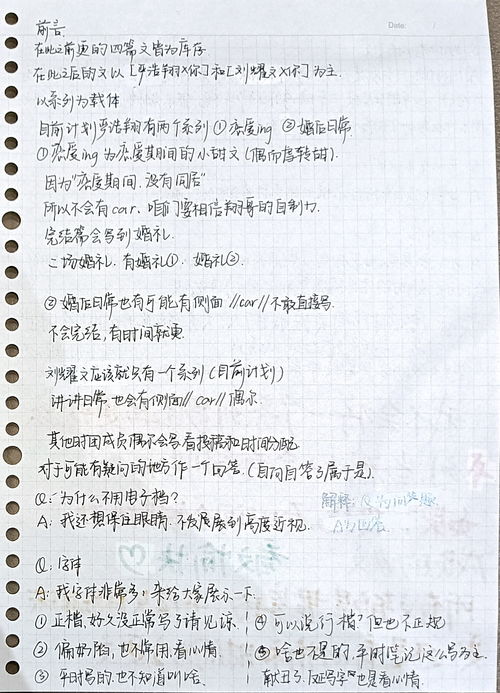 Date: /
前言:
在此之前更的四篇文皆为库存
在此之后的文以[严浩翔x你]和[刘耀文x你]为主.
以系列为载体
目前计划严浩翔有两个系列 ①恋度ing ②婚后日常
①恋度ing 为恋度期间的小甜文(偶而虐转甜).
因为"恋度期间,没有同居"
所以不会有car、咱们要相信翔哥的自制力.
完结篇会写到婚礼.
二场婚礼. 有婚礼①. 婚礼②.
②婚后日常也有可能有侧面//car//不敢直接写.
不会完结,有时间就更.
刘耀文应该就只有一个系列(目前计划)
讲讲日常 也会有侧面//car//偶尔.
其他时团成员偶尔会写.看投稿和时间分配
对于可能有疑问的地方作一个回答.(自问自答了属于是).
Q:为什么不用电子档?
解释:Q为问题
A:我还想保住眼睛.不发展到高度近视.
A为回答
Q:字体
A:我字体非常多,来给大家展示一下.
①正楷.好久没正常写了请见谅
②偏奶酪,也不常用.看心情.
③平时写的.也不知道叫啥.
④可以说行楷?但也不正规
⑤啥也不是的.平时笔记这么写为主.
献丑了.反正写啥也是看心情.